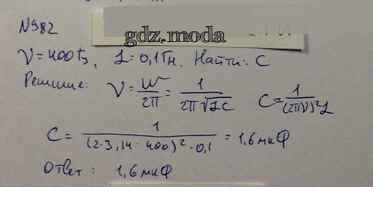 №982
gdz.moda
ν=400Гц, L=0,1Гн. Найти: C
Решение: ν = W/2π = 1/2π√LC C = 1/(2πν)²L
C = 1/(2·3,14·400)²·0,1 = 1,6 мкФ
Ответ: 1,6 мкФ